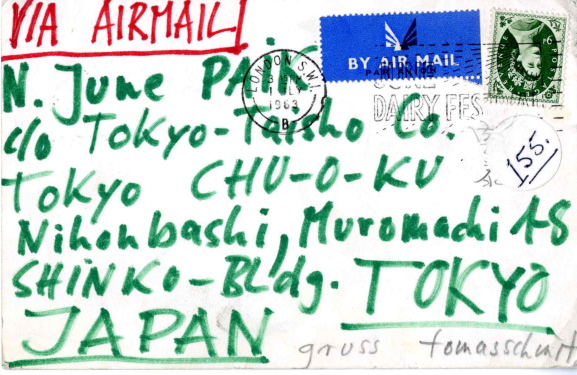 VIA AIRMAIL!
BY AIR MAIL
PAR AVION
LONDON S.W.1.
1963
B
DAIRY FES
N. June PAI
c/o TOKYO-Taisho Co.
155.
TOKYO CHU-O-KU
Nihonbashi, Muromachi 1-8
SHINKO-BLdg. TOKYO
JAPAN gruss tomasschmit